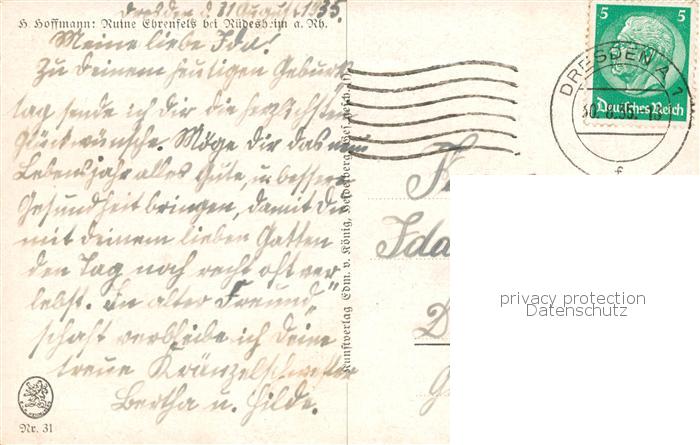 Dresden d. 31 August 1935.
H. Hoffmann: Ruine Ehrenfels bei Rüdesheim a. Rh.
Meine liebe Ida!
Zu Deinem heutigen Geburts
tag sende ich Dir die herzlichsten
Glückwünsche. Möge Dir das neue
Lebensjahr alles Gute, u. bessere
Gesundheit bringen, damit Du
mit Deinem lieben Gatten
den Tag noch recht oft ver
lebst. In alter Freund„
schaft verbleibe ich Deine
treue Kränzelschwester
Bertha u. Hilde.
Nr. 31
Kunstverlag Edm. v. König, Heidelberg
5 5
Deutsches Reich
DRESDEN A 1
f
Ida
privacy protection
Datenschutz